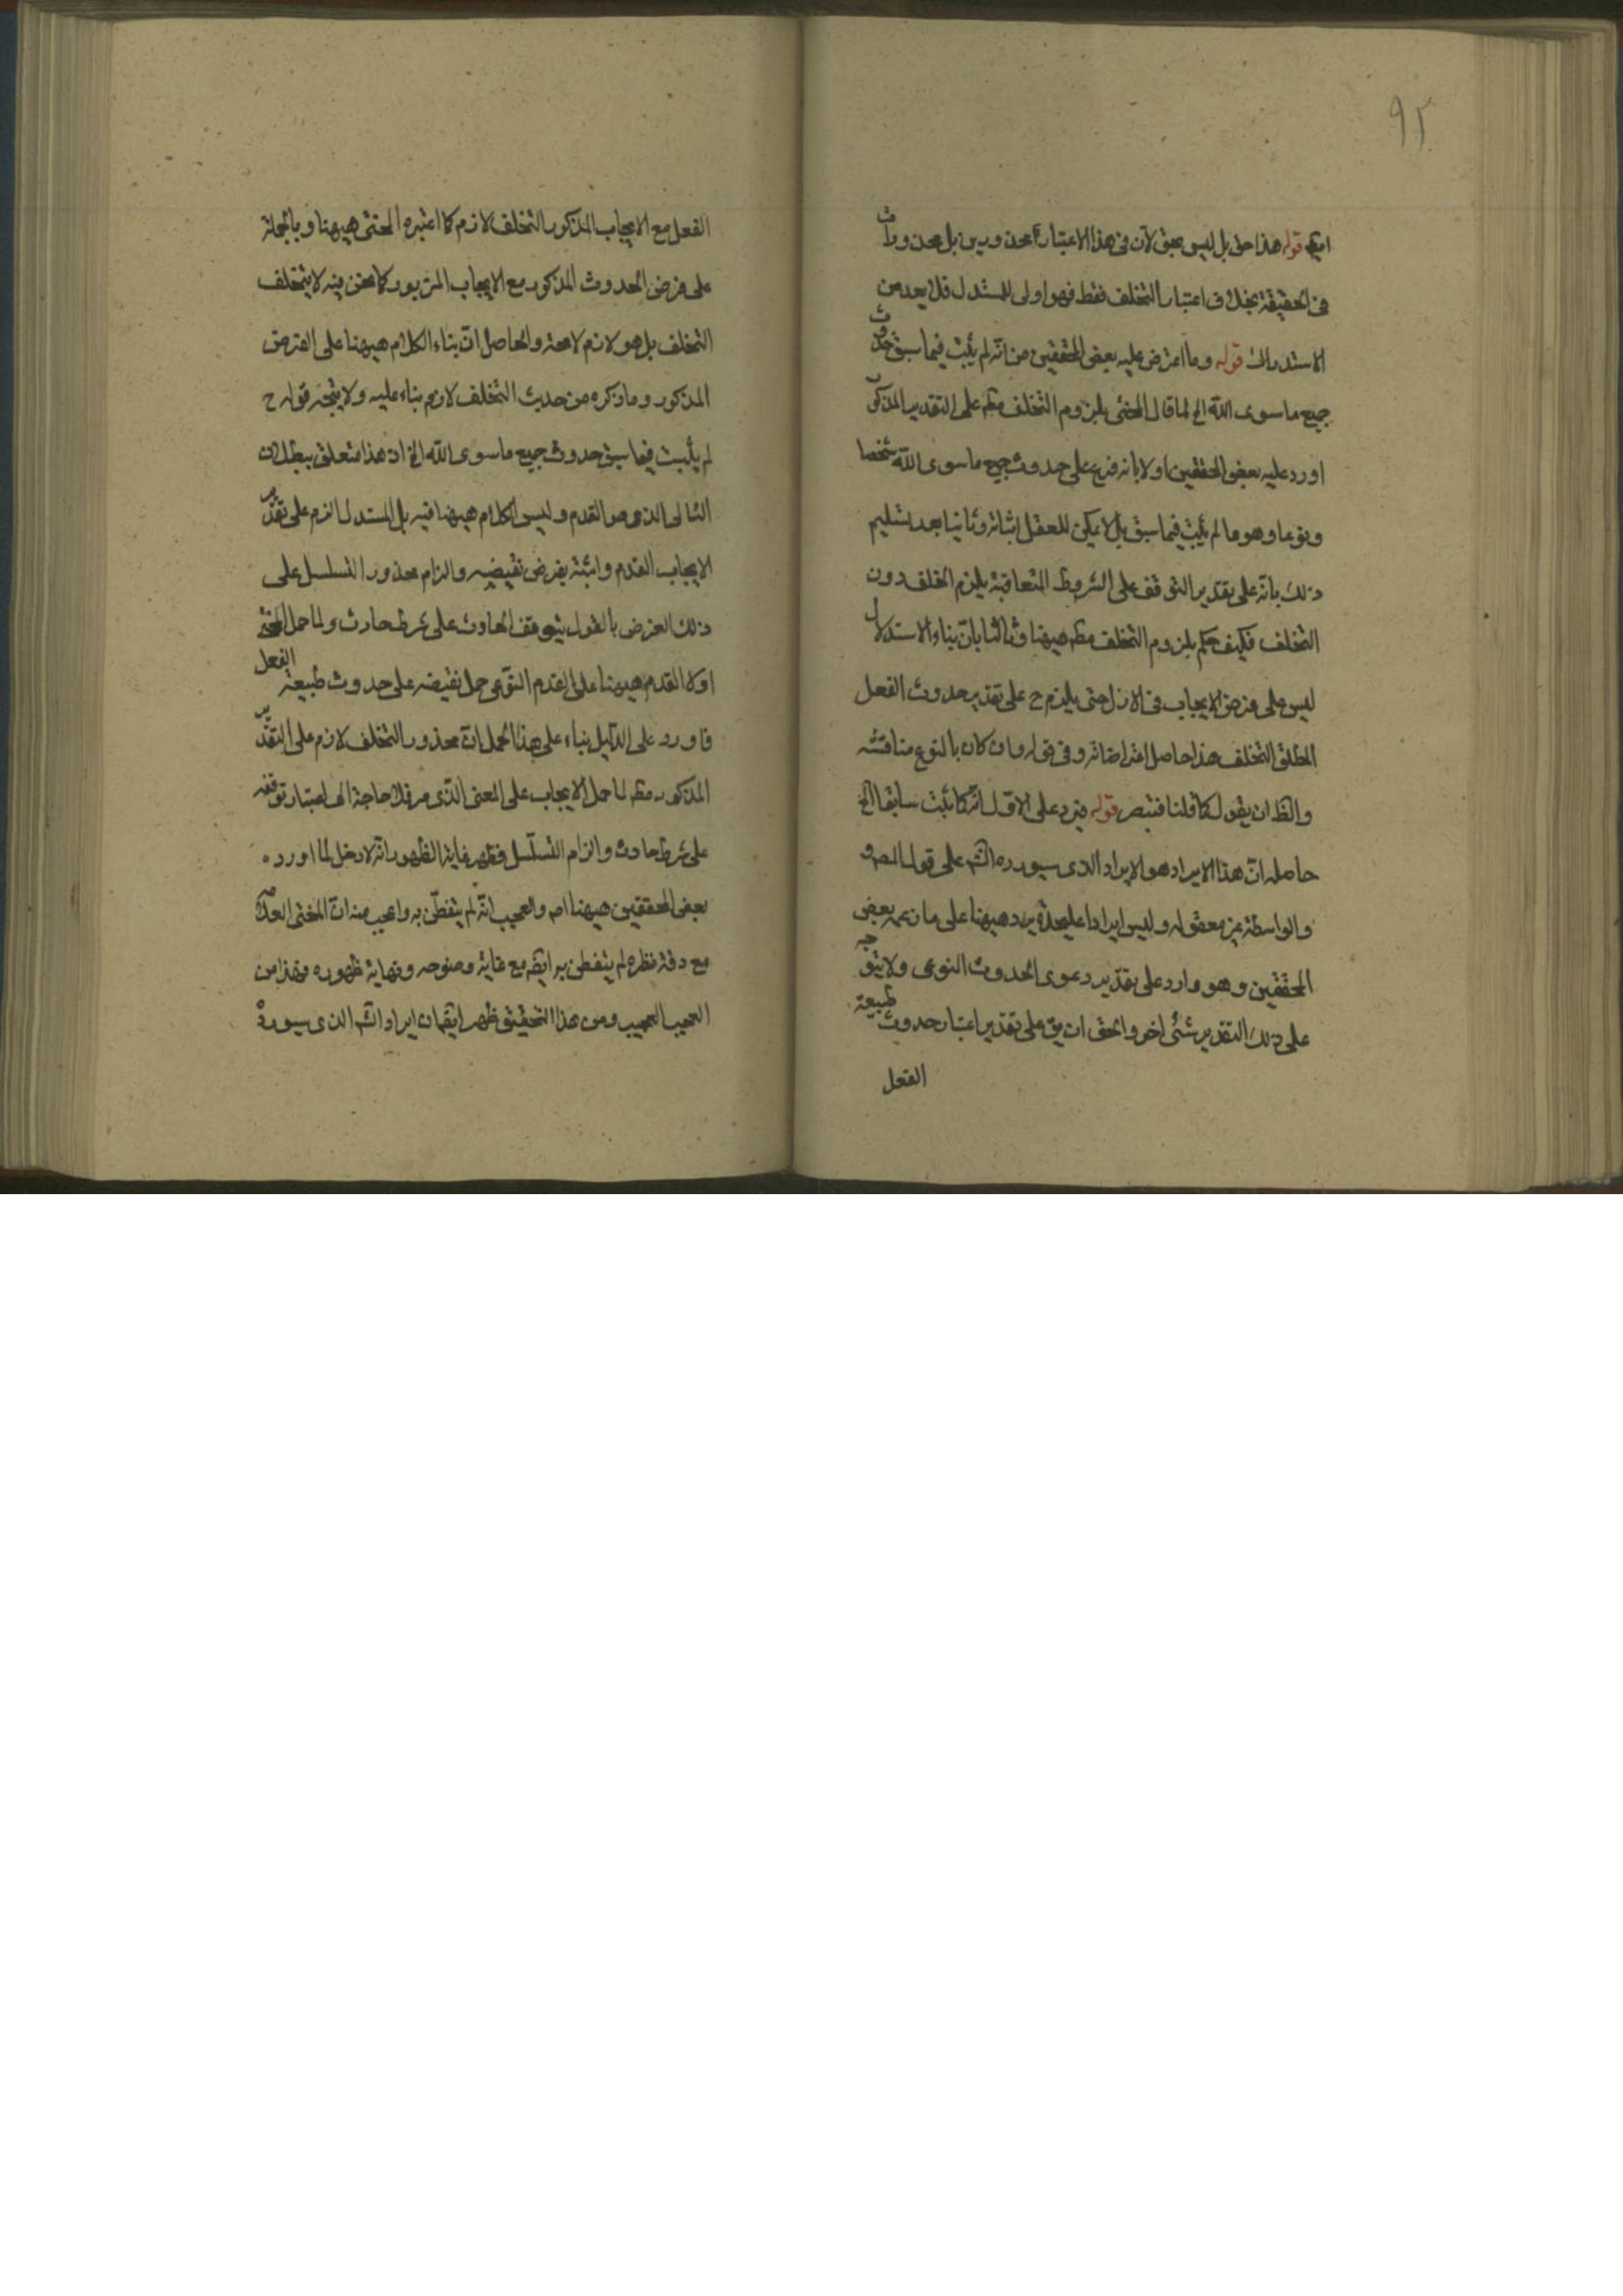 ٩٢
ايضا قوله هذا حق بل ليس بحق لان فى هذا الاعتبار محذورين بل محذورات
فى الحقيقة بخلاف اعتبار التخلف فقط فهو اولى للمستدل فلا يعد من
الاستدراك قوله وما اعترض عليه بعض المحققين من انه لم يثبت فيما سبق حدوث
جميع ما سوى الله الخ لما قال المحشى بلزوم التخلف مطم على التقدير المذكور
اورد عليه بعض المحققين اولا بانه فرع على حدوث جميع ما سوى الله شخصا
ونوعا وهو ما لم يثبت فيما سبق بل لا يمكن للعقل اثباته وثانيا بعد تسليم
ذلك بانه على تقدير التوقف على الشروط المتعاقبة يلزم الخلف دون
التخلف فكيف حكم بلزوم التخلف مطم ههنا وثالثا بان بناء الاستدلال
ليس على فرض الايجاب فى الازل حتى يلزم ح على تقدير حدوث الفعل
المطلق التخلف هذا حاصل اعتراضاته وفى قوله وان كان بالنوع مناقشة
والظ ان يقول كما قلنا فتبصر قوله فيرد على الاول انه كما يثبت سابقا الخ
حاصله ان هذا الايراد هو الايراد الذى سيورده الش على قول المصـ و
والواسطة غير معقوله وليس ايرادا عليحدة يرد ههنا على ما زعمه بعض
المحققين وهو وارد على تقدير دعوى الحدوث النوعى ولا يتوجه
على ذلك التقدير شئ اخر والحق ان يق على تقدير اعتبار حدوث طبيعة
الفعل
الفعل مع الايجاب المذكور التخلف لازم كما اعتبره المحشى ههنا وبالجملة
على فرض الحدوث المذكور مع الايجاب المزبور كما نحن فيه لا يتخلف
التخلف بل هو لازم لا محة والحاصل ان بناء الكلام ههنا على الفرض
المذكور وما ذكره من حديث التخلف لازم بناء عليه ولا يتجه قوله ح
لم يثبت فيما سبق حدوث جميع ما سوى الله الخ اذ هذا متعلق ببطلان
التالى الذى هو القدم وليس الكلام ههنا فيه بل المستدل الزم على تقدير
الايجاب القدم واثبته بفرض نقيضه والزام محذور التسلسل على
ذلك الفرض بالقول بتوقف الحادث على شرط حادث ولما حمل المحشى
اولا القدم ههنا على القدم النوعى حمل نقيضه على حدوث طبيعة الفعل
فاورد على الدليل بناء على هذا الحمل ان محذور التخلف لازم على التقدير
المذكور مطم لما حمل الايجاب على المعنى الذى مر فلا حاجة الى اعتبار توقفه
على شرط حادث والزام التسلسل فظهر غاية الظهور انه لا دخل لما اورده
بعض المحققين ههنا اصـ والعجيب انه لم يتفطن به واعجب منه ان المحشى العلامة
مع دقة نظره لم يتفطن به ايضا مع غاية وضوحه ونهاية ظهوره فهذا من
العجيب العجيب ومن هذا التحقيق ظهر ايضا ان ايراد الش الذى سيورده